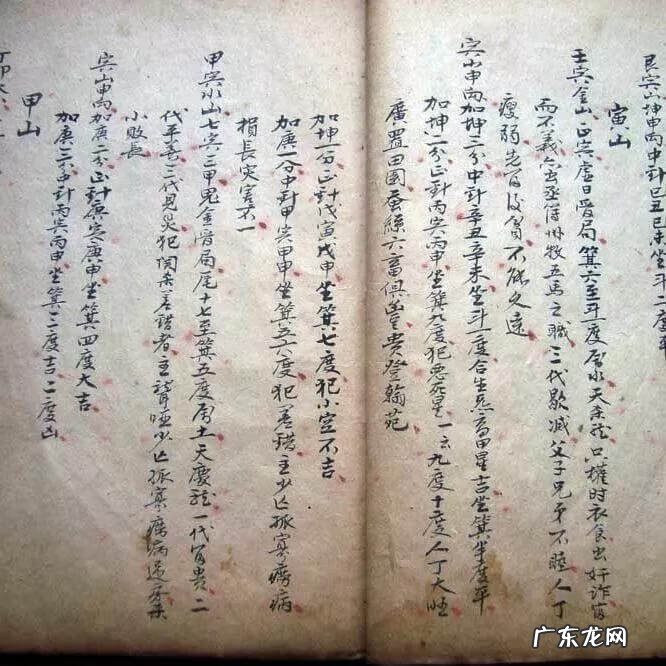 艮山坤申向中針己丑己未坐斗二度平
寅山
壬寅金山正寅虛日晉局箕六至斗一度屬水天
而不義六出丞簿州牧五馬之職三代歇減父子兄弟不睦人丁
瘦弱先富後貧不能久遠
寅山申向加坤三分中針辛丑辛未坐斗一度合生炁富甲星吉坐箕半度平
加坤一分正針丙寅丙申坐箕九度犯惡星一云九度十度人丁大旺
廣置田園蚕絲六畜俱豊貴登翰苑
加坤一分正針戊寅戊申坐箕七度犯小空不吉
加庚一分中針甲寅甲申坐箕五六度犯差錯主少亡孤寡癆病
損長災害不一
甲寅水山七寅三甲鬼金晉局尾十七至箕五度屬土天慶龍一代富貴二
代平善三代見災犯関杀差錯者主聾啞少亡孤寡癆病
小敗長
寅山申向加庚二分正針庚寅庚申坐箕四度大吉
加庚三分中針丙寅丙申坐箕二三度吉二度凶
甲山
广东龙网